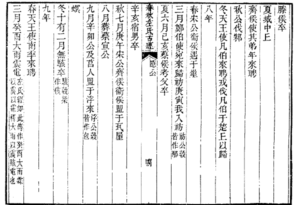 滕侯卒
夏城中丘
齊侯使其弟年來聘
秋公伐邾
冬天王使凡伯來聘戎伐凡伯于楚丘以歸
八年
春宋公衛侯遇于垂
三月鄭伯使宛來歸祊庚寅我入祊
夏六月己亥蔡侯考父卒
辛亥宿男卒
春秋左氏古經
隱公
秋七月庚午宋公齊侯衛侯盟于瓦屋
八月葬蔡宣公
九月辛卯公及莒人盟于浮來
螟
冬十有二月無駭卒
九年
春天王使南季來聘
三月癸酉大雨震電